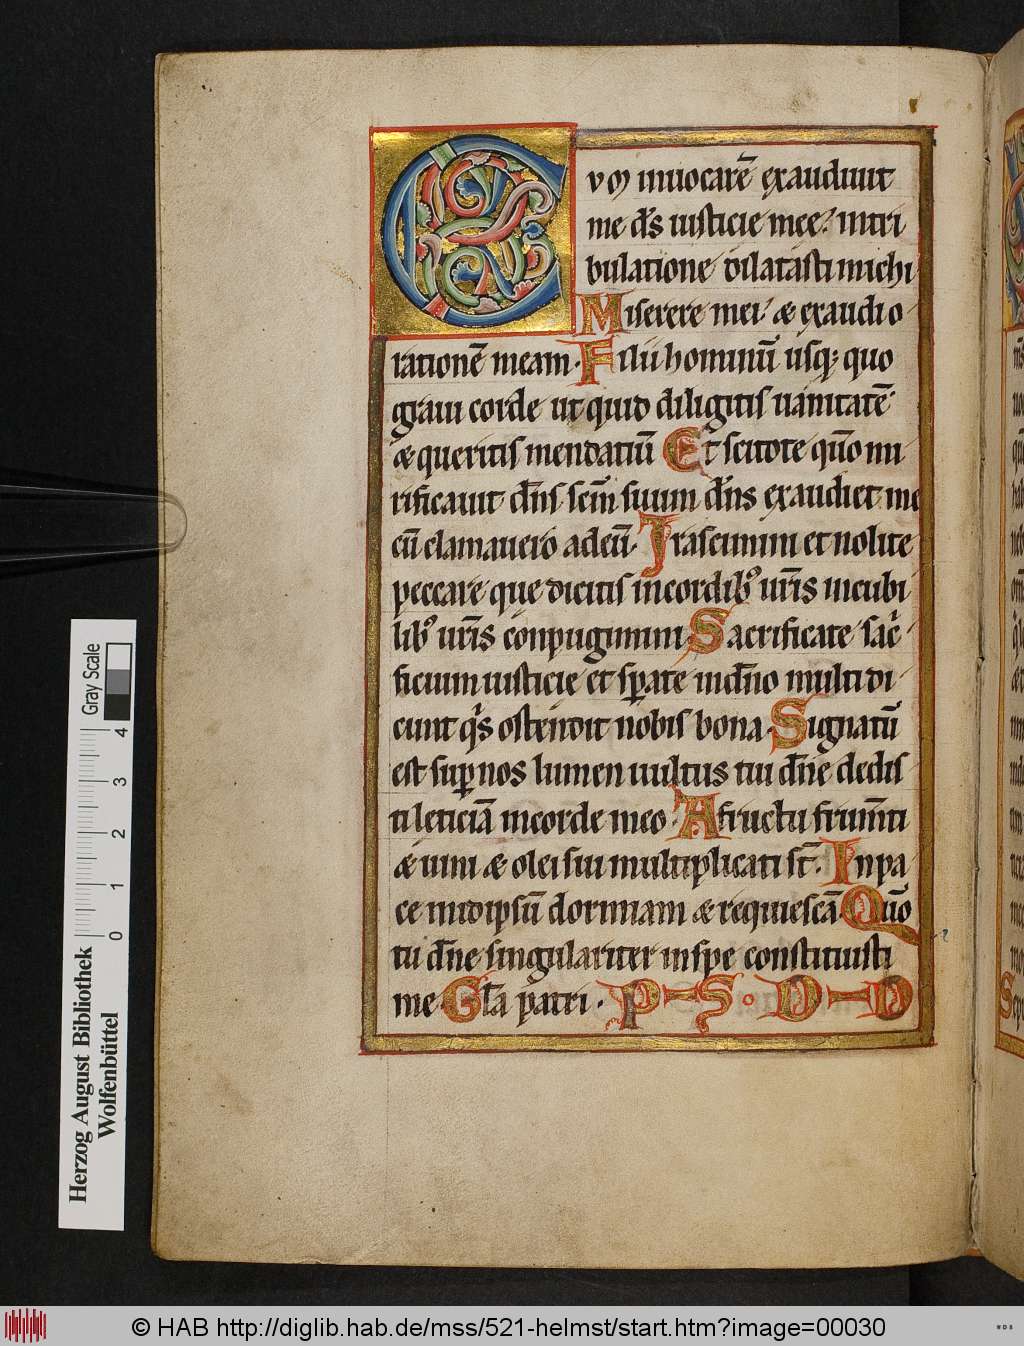 CVM inuocarē exaudiuit
me dš iusticie mee. intri
bulatione dilatasti michi
Miserere mei æ exaudi o
rationē meam. Filii hominū usq; quo
graui corde ut quid diligitis uanitatē
æ queritis mendatiū Et scitote qūo mi
rificauit dn̄s sc̄m suum dn̄s exaudiet me
cū clamauero ad eū. Irascimini et nolite
peccare que dicitis in cordib; ur̄is in cubi
lib; ur̄is conpugimini Sacrificate sac̄
ficium iusticie et sꝑate in dn̄o multi di
cunt qͥs ostendit nobis bona. Signatū
est suꝑ nos lumen uultus tui dn̄e dedis
ti leticiā in corde meo. A fructu frum̄ti
æ uini æ olei sui multiplicati st̄. In pa
ce in idipsū dormiam æ requiescā Qūo
tu dn̄e singulariter in spe constituisti
me Gl̄a patri. P S D D
Gray Scale
4
3
2
1
0
Herzog August Bibliothek
Wolfenbüttel
© HAB http://diglib.hab.de/mss/521-helmst/start.htm?image=00030
WDB